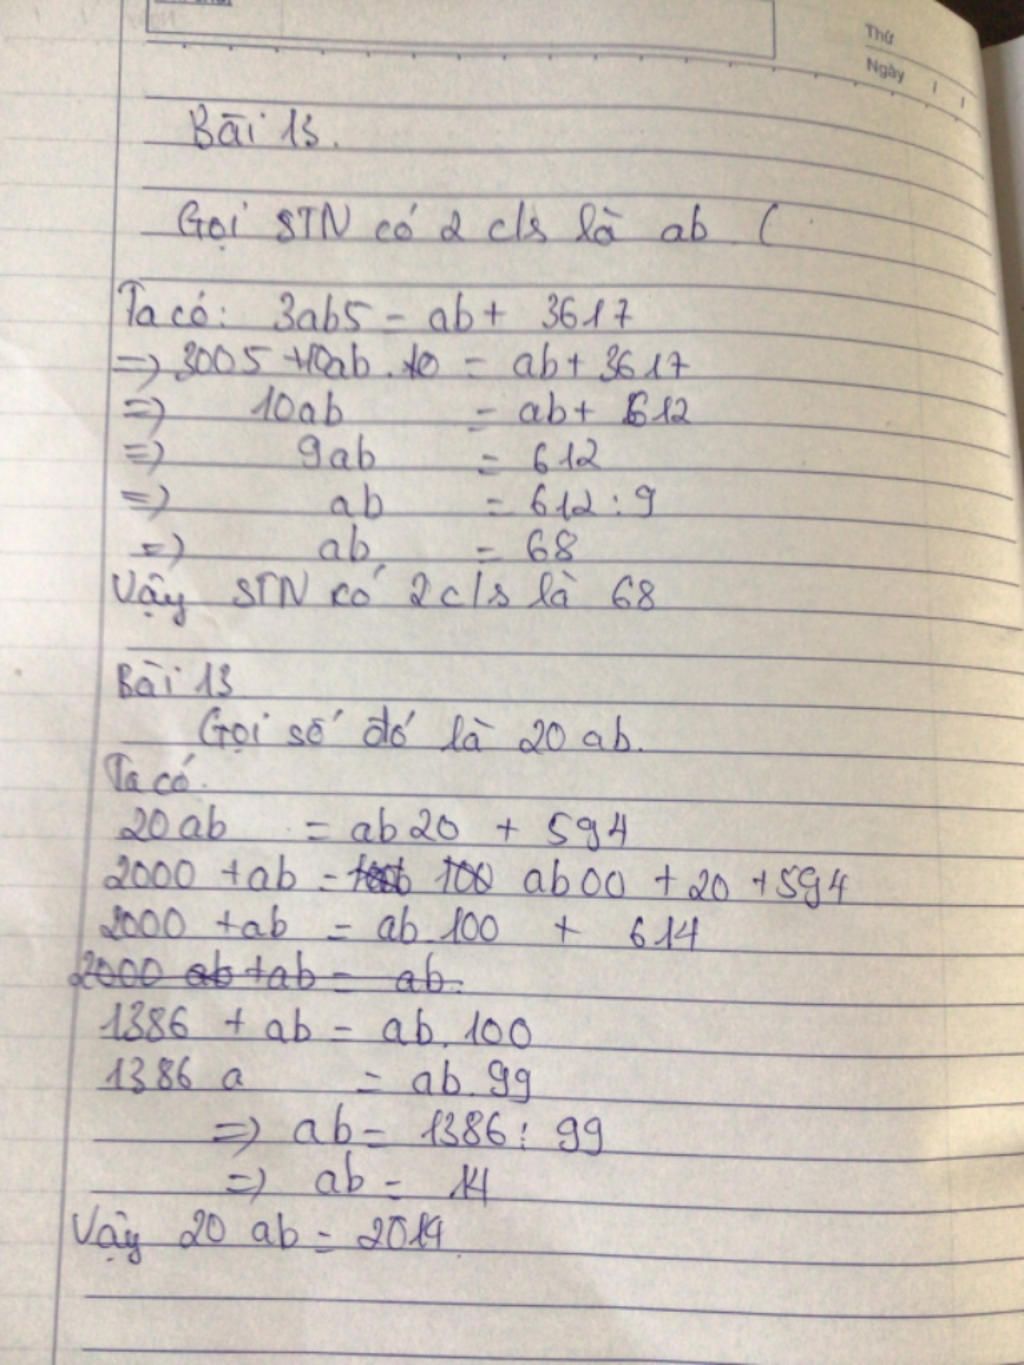 Thứ
Ngày
Bài 13.
Gọi STN có 2 c/s là ab (
Ta có: 3ab5 = ab + 3617
=> 3005 + 10ab = ab + 3617
=> 10ab = ab + 612
=> 9ab = 612
=> ab = 612 : 9
=> ab = 68
Vậy STN có 2 c/s là 68
Bài 13
Gọi số đó là 20 ab.
Ta có.
20ab = ab20 + 594
2000 + ab = ab00 + 20 + 594
2000 + ab = ab.100 + 614
2000 ab + ab = ab.
1386 + ab = ab.100
1386 a = ab.99
=> ab = 1386 : 99
=> ab = 14
Vậy 20 ab = 2014.